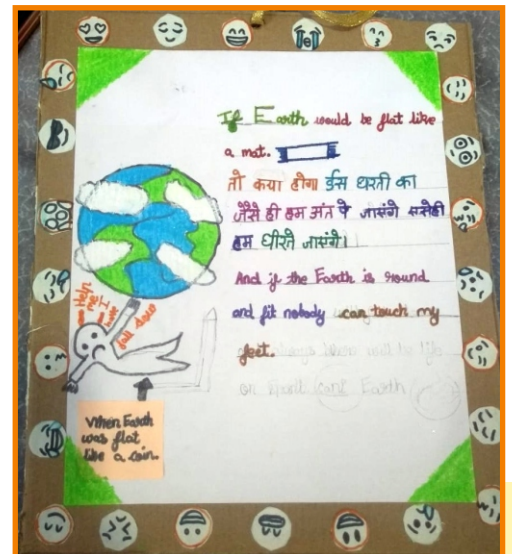 If Earth would be flat like
a mat.
तो कया होगा ईस धरती का
जैसे ही हम अंत पे जासंगे ससेही
हम घीरते जासंगे।
And if the Earth is round
and fit nobody can touch my
feet.
on Earth
Help me! I have fall down
When Earth
was flat
like a coin.